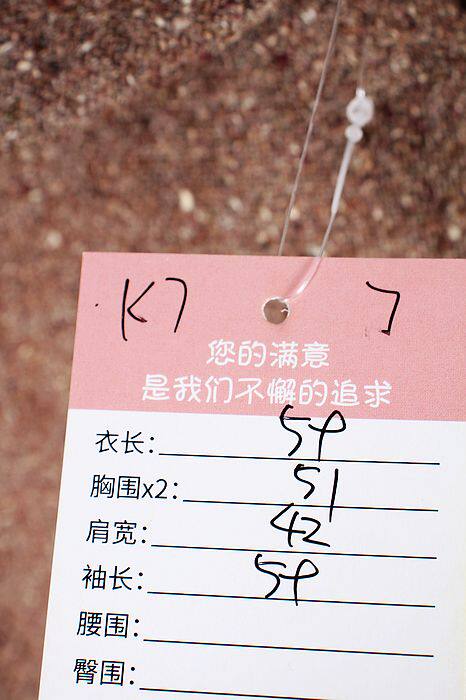 K7 7
您的满意
是我们不懈的追求
衣长: 59
胸围x2: 51
肩宽: 42
袖长: 59
腰围:
臀围: